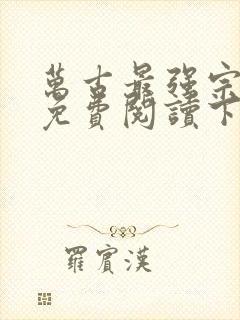 萬古最強宗
免費閱讀下
羅賓漢